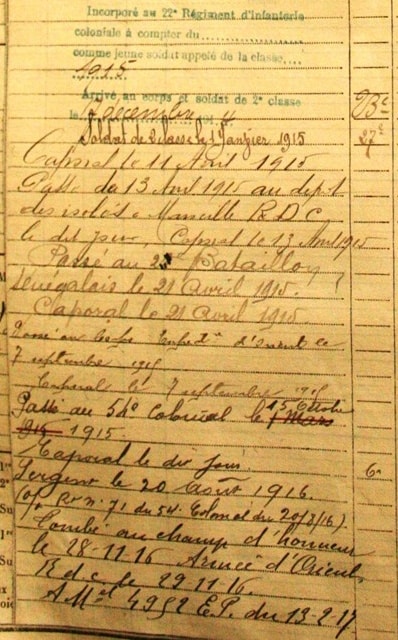 Incorporé au 22e Régiment d'Infanterie
coloniale à compter du
comme jeune soldat appelé de la classe
1915
Arrivé au corps et soldat de 2e classe
le décembre 191 4
Soldat de 2e classe le 1 Janvier 1915
Caporal le 11 Avril 1915
Passé du 13 Avril 1915 au dépôt
des isolés à Marseille R.D.C
le dit jour, Caporal le 13 Avril 1915
Passé au 2e Bataillon
Sénégalais le 21 avril 1915.
Caporal le 21 Avril 1915
Passé au Corps Expedre d'Orient le
7 septembre 1915
Caporal le 7 septembre 1915
15 Octobre
Passé au 54e Colonial le 1 Mars
1915.
Caporal le dit Jour.
Sergent le 20 Août 1916.
(of Rt n. 71 du 54e Colonial du 20/8/16).
Tombé au champ d'honneur
le 28-11-16 Armée d'Orient,
R.d.c. le 29.11.16.
A Mel 4952 E.P. du 13-2-17
27e
6e